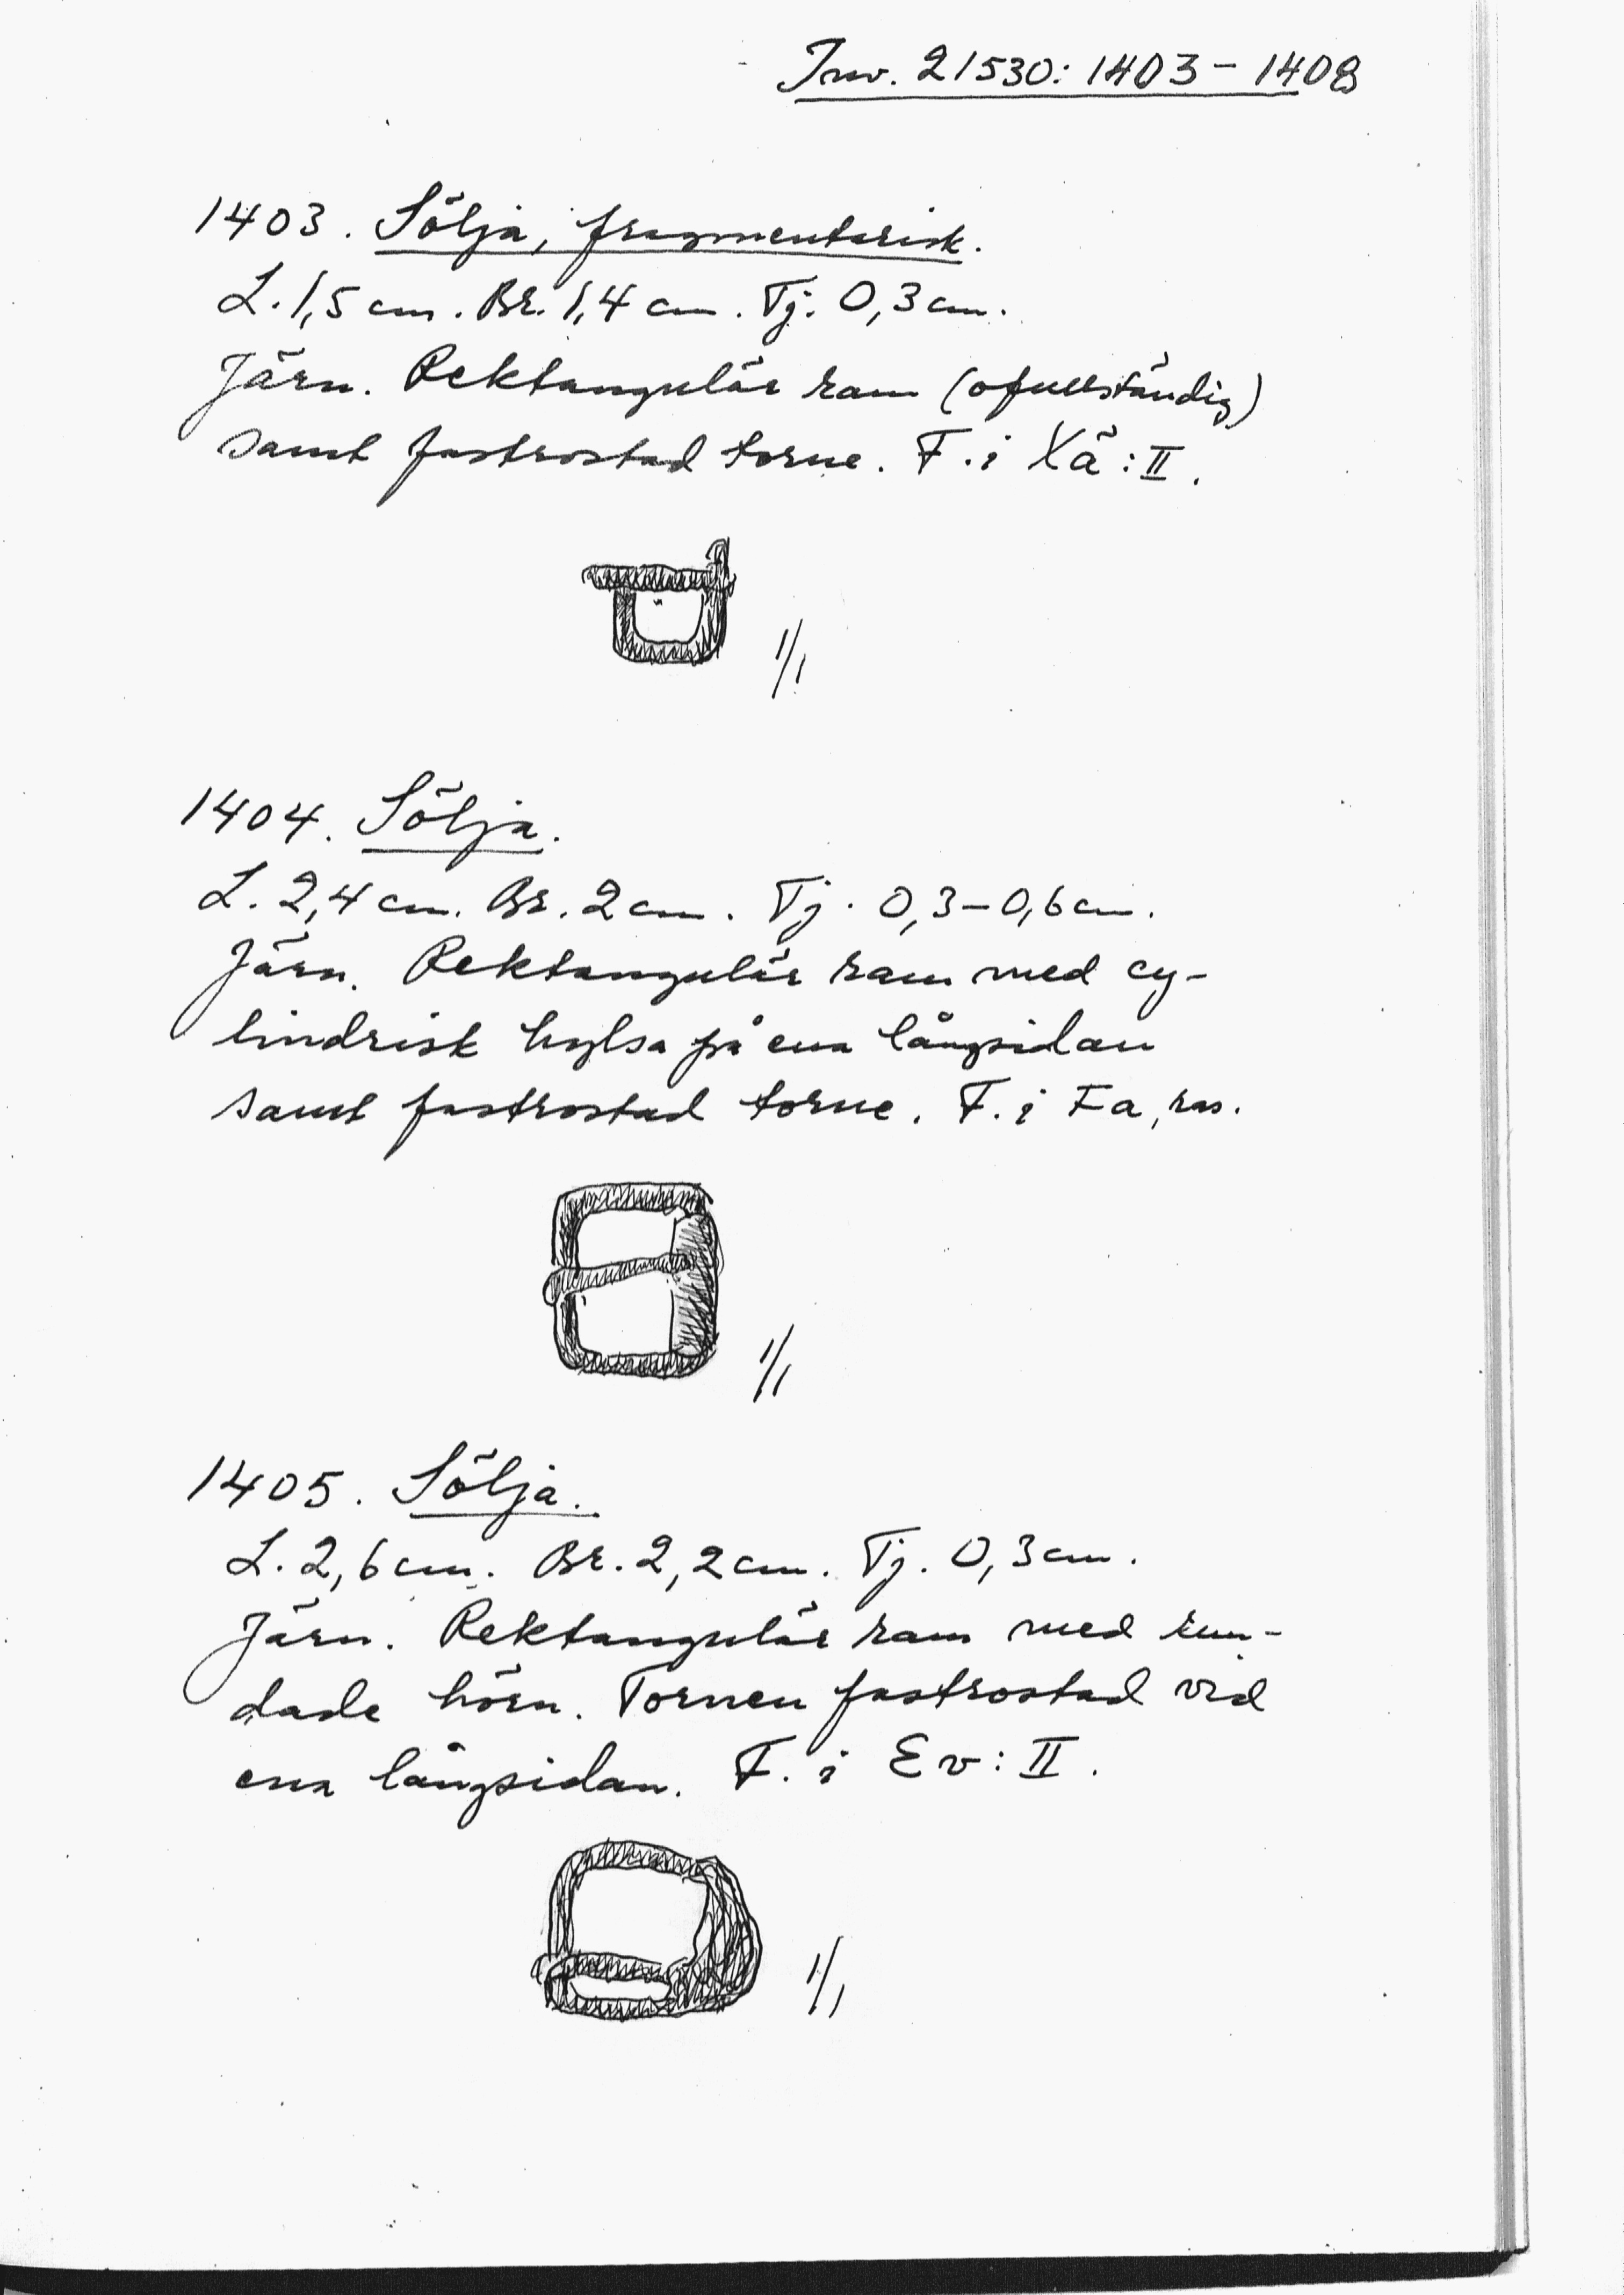 Inv. 21530: 1403-1408
1403. Sölja, fragmentarisk.
L. 1,5 cm. Br. 1,4 cm. Tj. 0,3 cm.
Järn. Rektangulär ram (ofullständig)
samt fastrostad torne. F. i Xä: II.
1/1
1404. Sölja.
L. 2,4 cm. Br. 2 cm. Tj. 0,3-0,6 cm.
Järn. Rektangulär ram med cy-
lindrisk hylsa på ena långsidan
samt fastrostad torne. F. i Fa, ras.
1/1
1405. Sölja.
L. 2,6 cm. Br. 2,2 cm. Tj. 0,3 cm.
Järn. Rektangulär ram med run-
dade hörn. Tornen fastrostad vid
ena långsidan. F. i Ev: II.
1/1